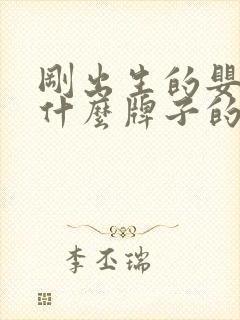 剛出生的嬰
什麼牌子的
李丕瑞